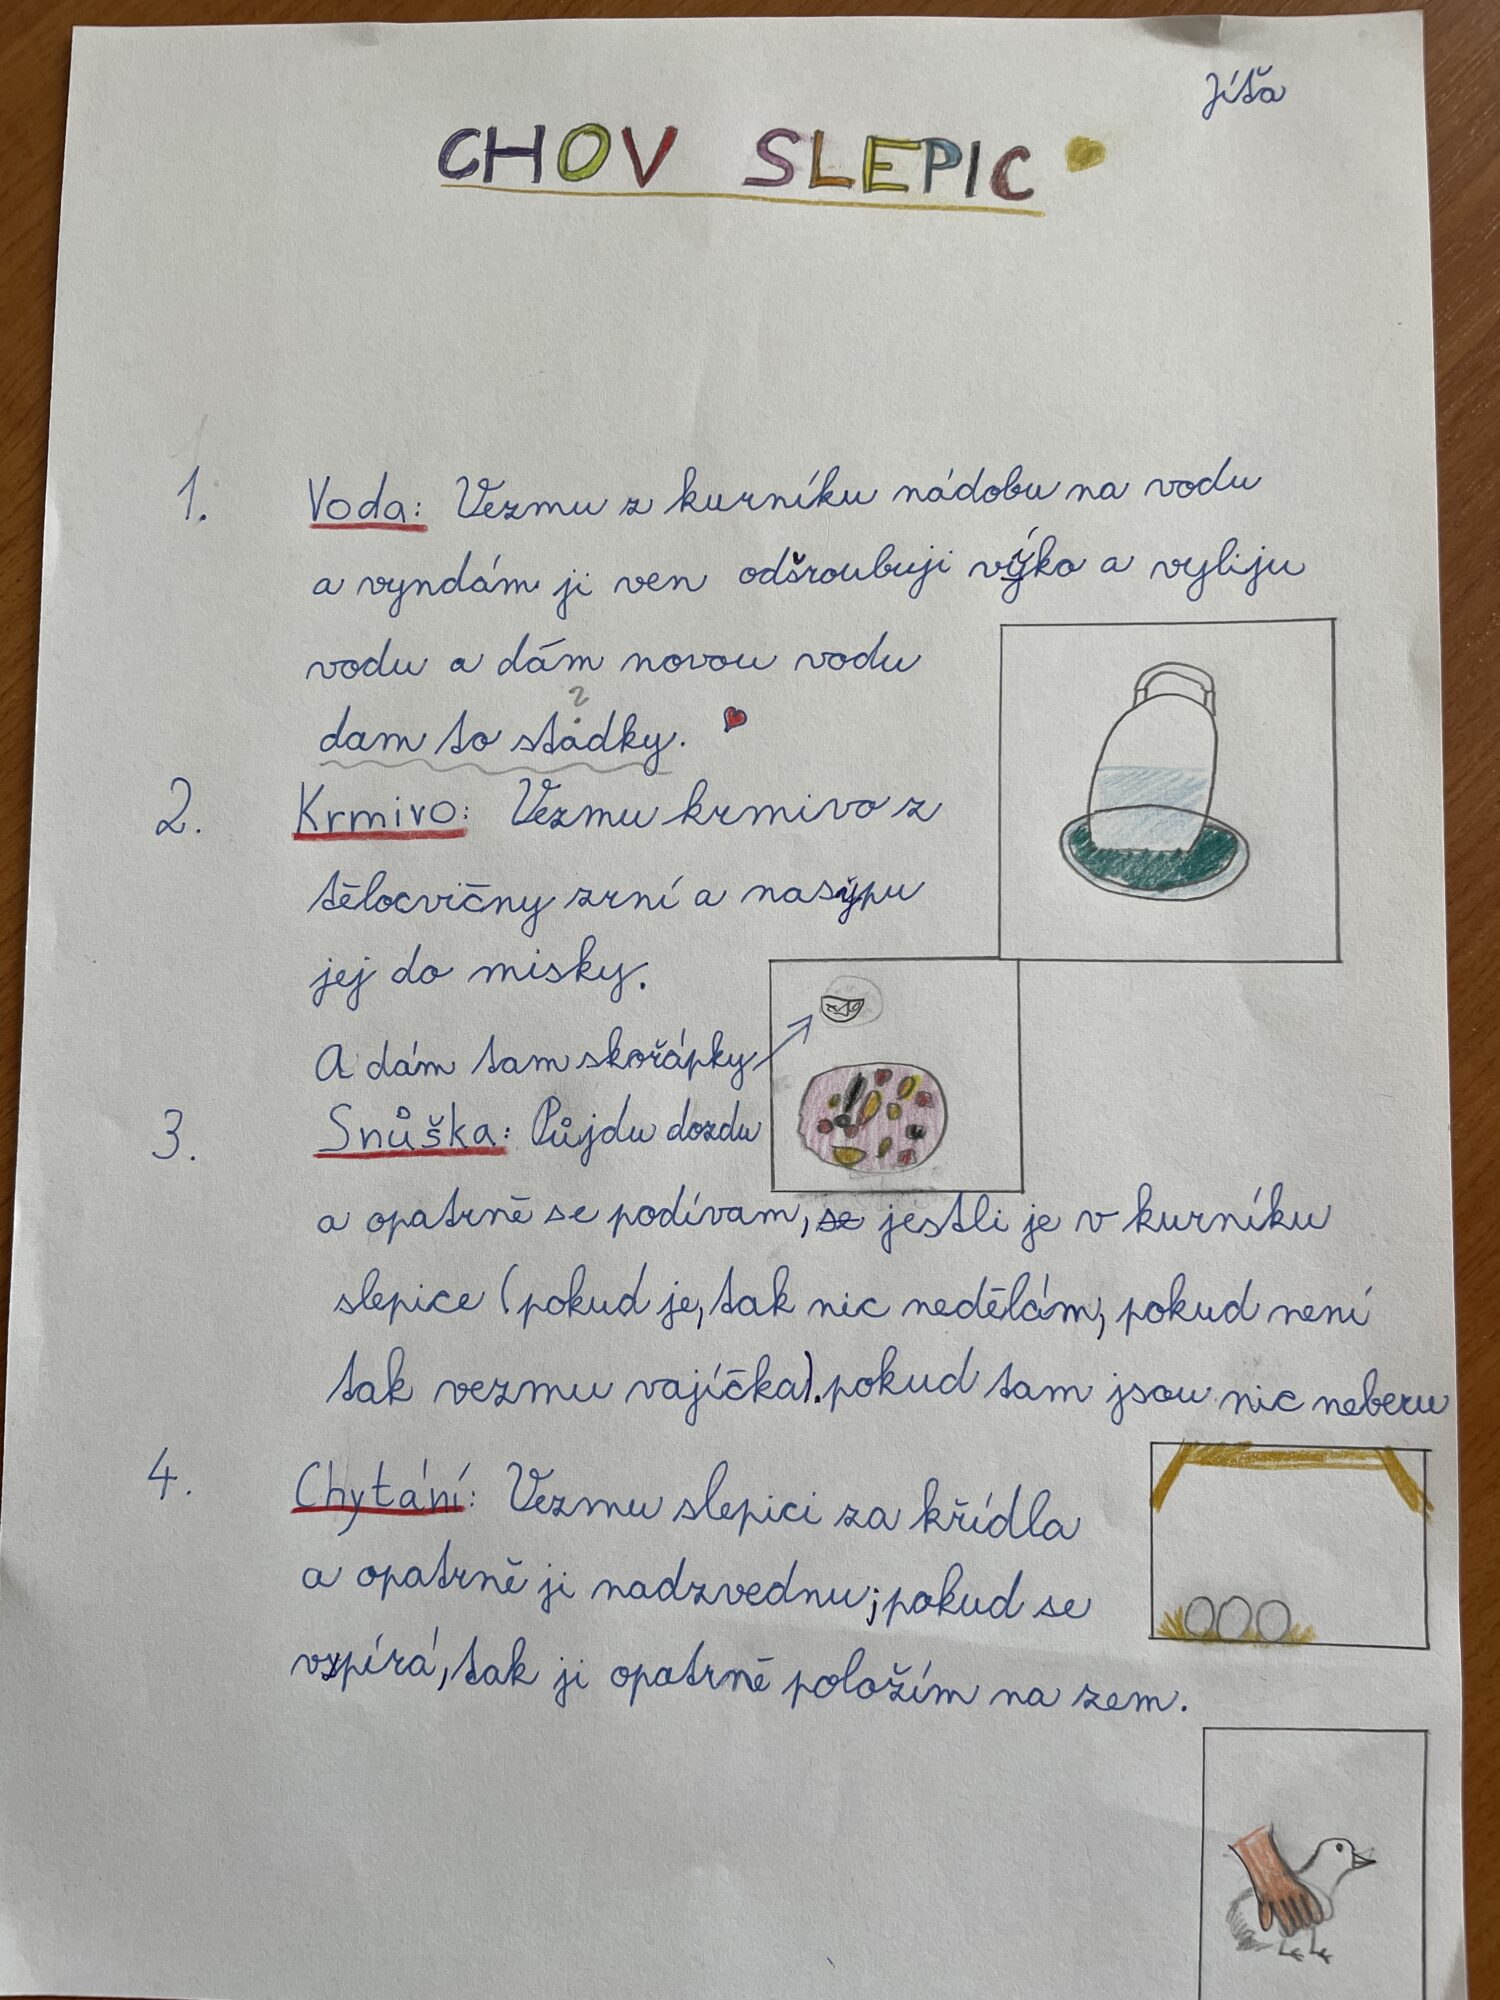 Jíťa
CHOV SLEPIC
1. Voda: Vezmu z kurníku nádobu na vodu
a vyndám ji ven odšroubuji výko a vyliju
vodu a dám novou vodu
?
dam to stadky.
2. Krmivo: Vezmu krmivo z
tělocvičny zrní a nasypu
jej do misky.
A dám tam skořápky
3. Snůška: Půjdu dozdu
a opatrně se podívam, se jestli je v kurníku
slepice (pokud je, tak nic nedělám, pokud není
tak vezmu vajíčka). pokud tam jsou nic neberu
4. Chytání: Vezmu slepici za křídla
a opatrně ji nadzvednu; pokud se
vzpírá, tak ji opatrně položím na zem.